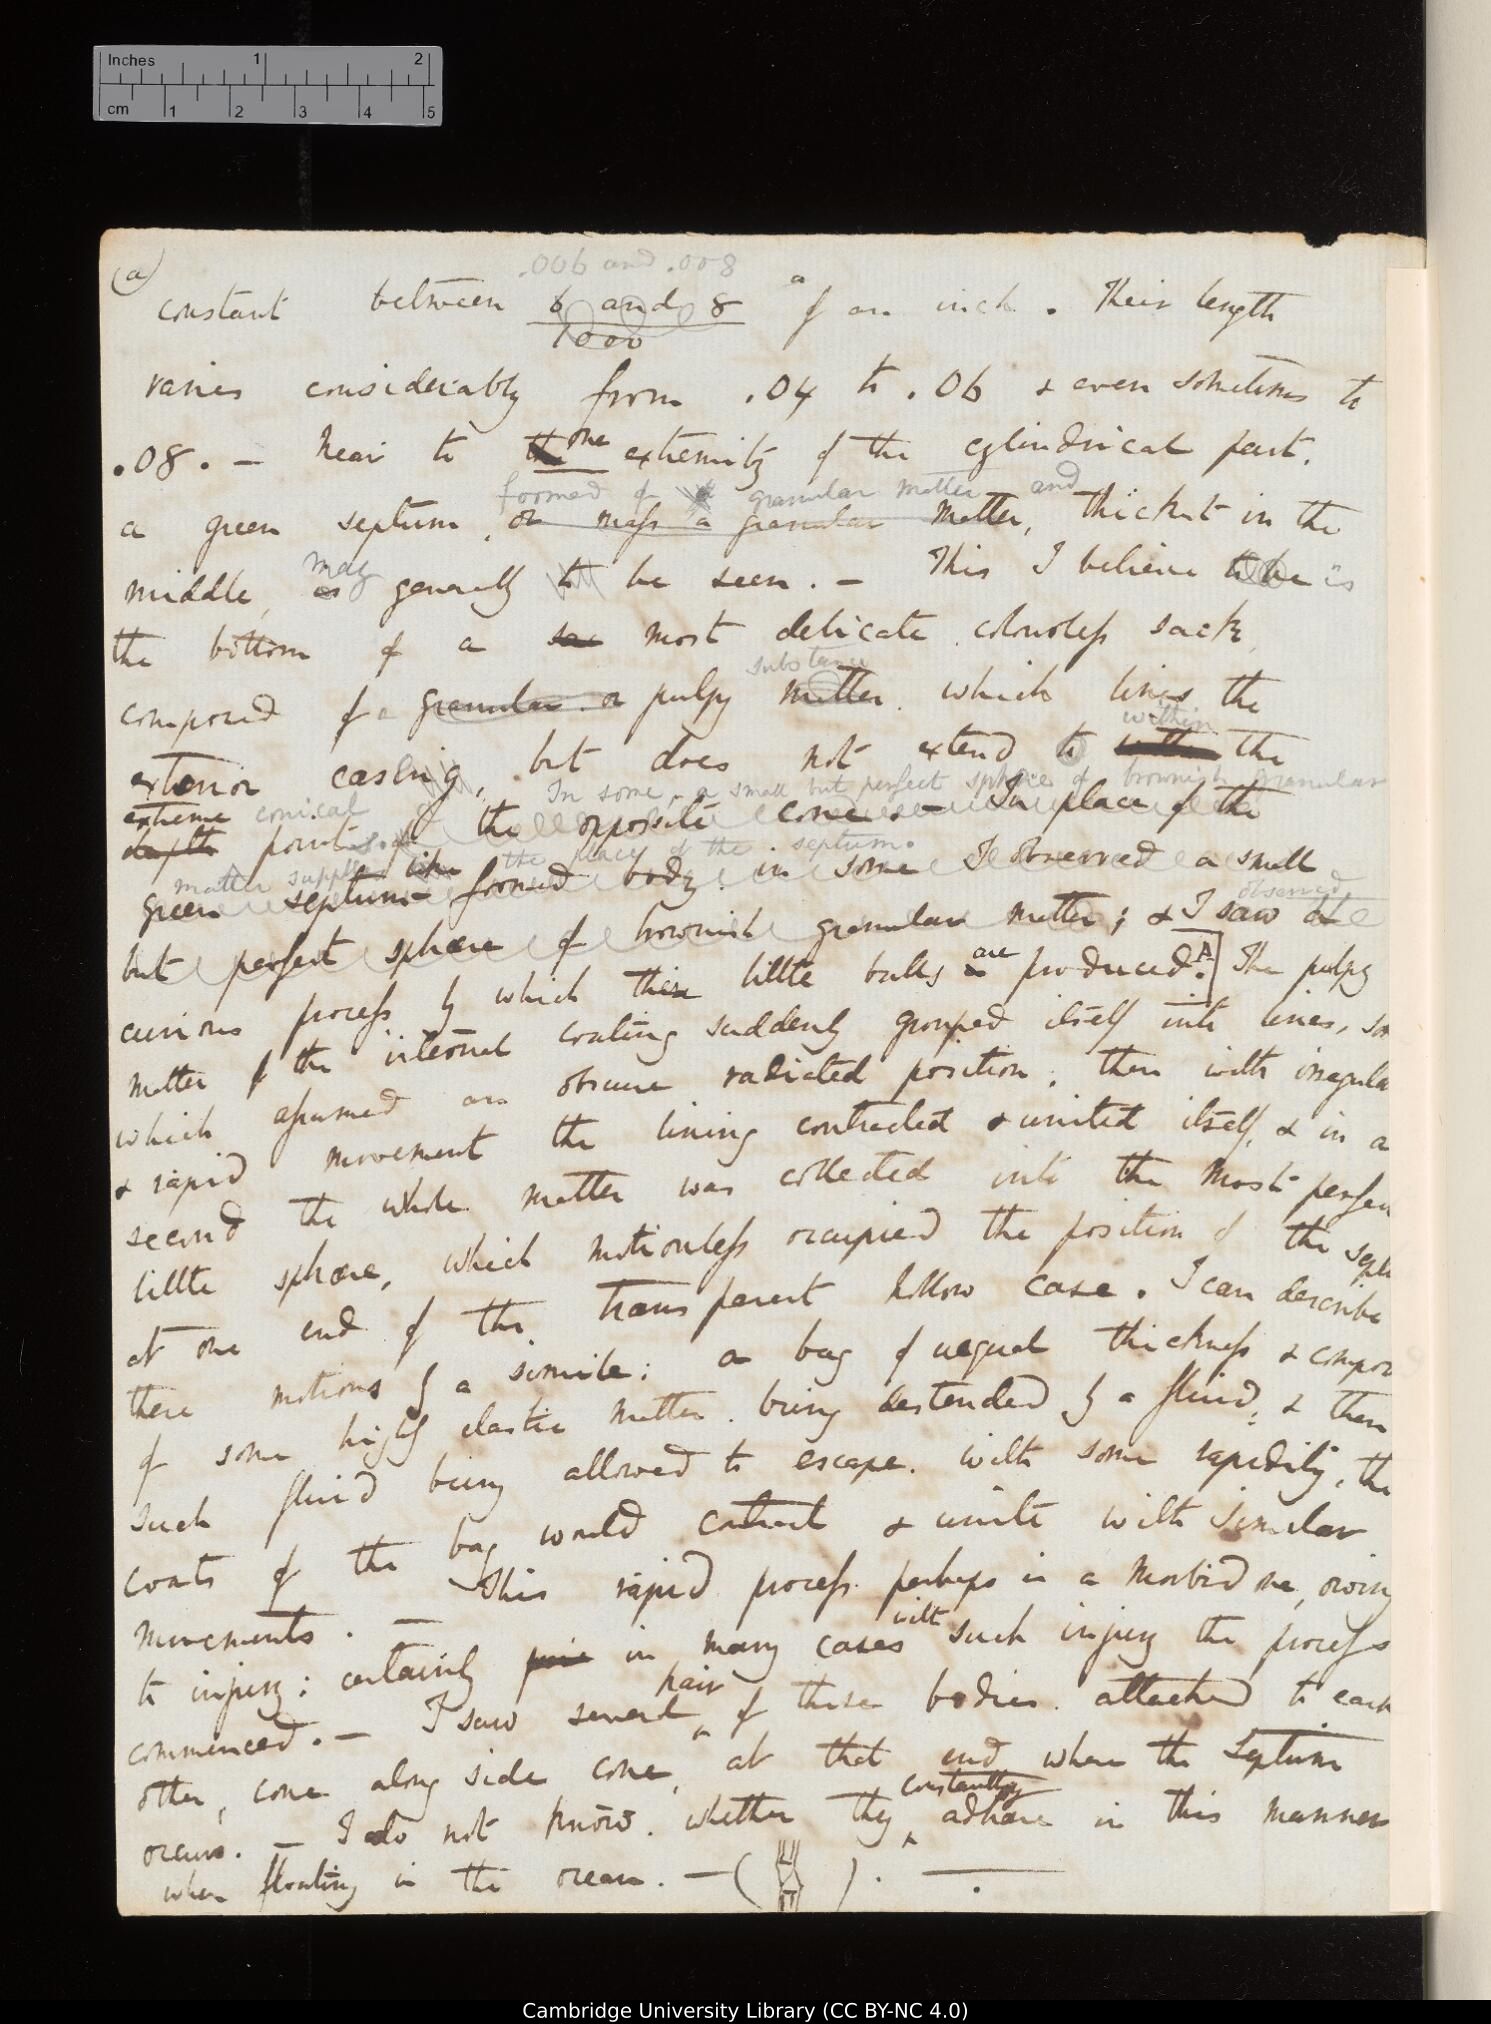 Inches 1 2
cm 1 2 3 4 5
(a)
.006 and .008
constant between 6 and 8 of an inch. Their length
1000
varies considerably from .04 to .06 & even sometimes to
.08. — Near to the one extremity of the cylindrical part.
formed of granular matter and
a green septum, or mass a granular matter, thickest in the
may
middle, is generally to be seen. — This I believe to be is
the bottom of a sac most delicate colourless sack,
substance
composed of a granular or pulpy matter. which lines the
within
exterior casing, but does not extend to within the
In some, a small but perfect sphære of brownish granular
extreme conical
depth points of the opposite cone. — In place of the
matter supplies the place of the septum.
green septum like formed body. in some I observed a small
observed
but perfect sphære of brownish granular matter; & I saw the
curious process by which these little balls are produced. A The pulpy
matter of the internal coating suddenly grouped itself into lines, som
which assumed an obscure radiated position; then with irregula
& rapid movement the lining contracted & united itself, & in a
second the whole matter was collected into the most perfec
little sphære, which motionless occupied the position of the sept
at one end of the transparent hollow case. I can describe
these motions by a simile: a bag of uequal thickness & compos
of some highly elastic matter. being destended by a fluid; & then
such fluid being allowed to escape. with some rapidity, the
coats of the bag would contract & unite with similar
movements. — This rapid process. perhaps is a morbid one, owing
to injury: certainly in many cases with such injury the process
commenced. — I saw several pair of these bodies. attached to each
other, cone along side cone, at that end where the septum
occurs. — I do not know. whether they constantly adhære in this manner
when floating in the ocean. — ( ). —
Cambridge University Library (CC BY-NC 4.0)